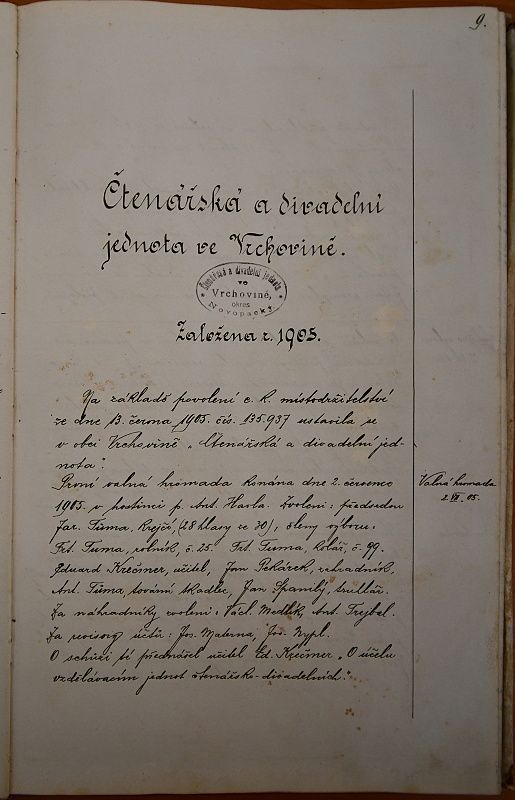 9.
Čtenářská a divadelní
jednota ve Vrchovině.
Čtenářská a divadelní jednota
ve
Vrchovině,
okres
Novopacký
Založena r. 1905.
Na základě povolení c. k. místodržitelství
ze dne 13. června 1905. čís. 135.937 ustavila se
v obci Vrchovině „Čtenářská a divadelní jed-
nota“.
První valná hromada konána dne 2. července
1905. v hostinci p. Ant. Havla. Zvoleni: předsedou
Jar. Tůma, krejčí, (28 hlasy ze 30), členy výboru:
Frt. Tuma, rolník, č. 25. Frt. Tuma, kolář, č. 99.
Eduard Krečmer, učitel, Jan Pekárek, zahradník,
Ant. Tůma, tovární tkadlec, Jan Spanilý, truhlář.
Za náhradníky zvoleni: Václ. Medlík, Ant. Trejbal.
Za revisory účtů: Jos. Materna, Jos. Nypl.
O schůzi té přednášel učitel Ed. Krečmer „O účelu
vzdělávacím jednot čtenářsko-divadelních“.
Valná hromada
2. VII. 05.